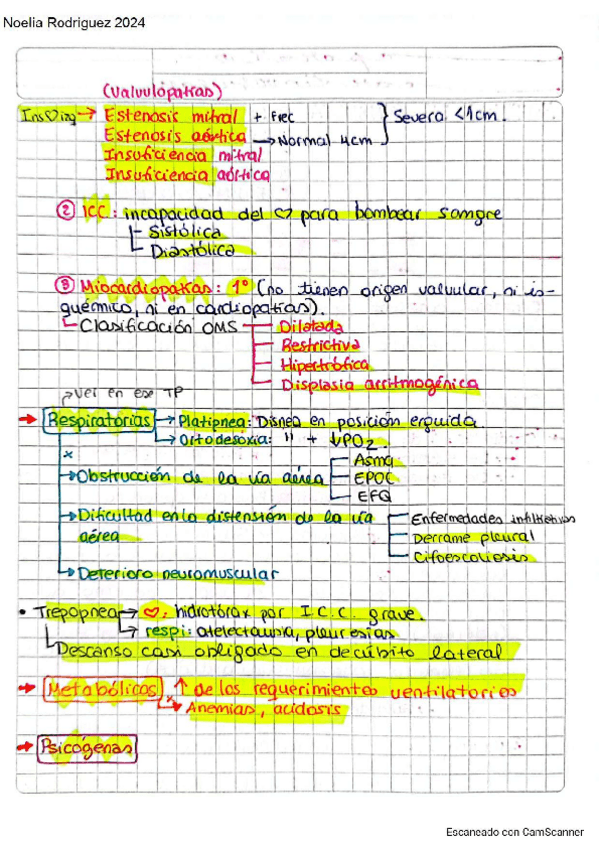 Noelia Rodriguez 2024
(Valvulopatias)
Ins ♡ izq → Estenosis mitral + Frec } Severa <1cm.
Estenosis aórtica → Normal 4cm
Insuficiencia mitral
Insuficiencia aórtica
② ICC: incapacidad del ♡ para bombear sangre
Sistólica
Diastólica
③ Miocardiopatias: 1° (no tienen origen valvular, ni is-
quémico, ni en cardiopatías).
Clasificación OMS Dilatada
Restrictiva
Hipertrófica
Displasia arritmogénica
Ver en ese TP
→ Respiratorias → Platipnea: Disnea en posición erguida.
→ Ortodesoxia: " + ↓PO2.
* Asma
→ Obstrucción de la vía aérea EPOC
EFQ
→ Dificultad en la distensión de la vía Enfermedades infiltrativas
aérea Derrame pleural
Cifoescoliosis
→ Deterioro neuromuscular
• Trepopnea → ♡: hidrotórax por I.C.C. grave.
→ respi: atelectausia, pleuresias
Descanso casi obligado en decúbito lateral
→ Metabólicos ↑ de los requerimientos ventilatorios
→ Anemias, acidosis
→ Psicógenas
Escaneado con CamScanner